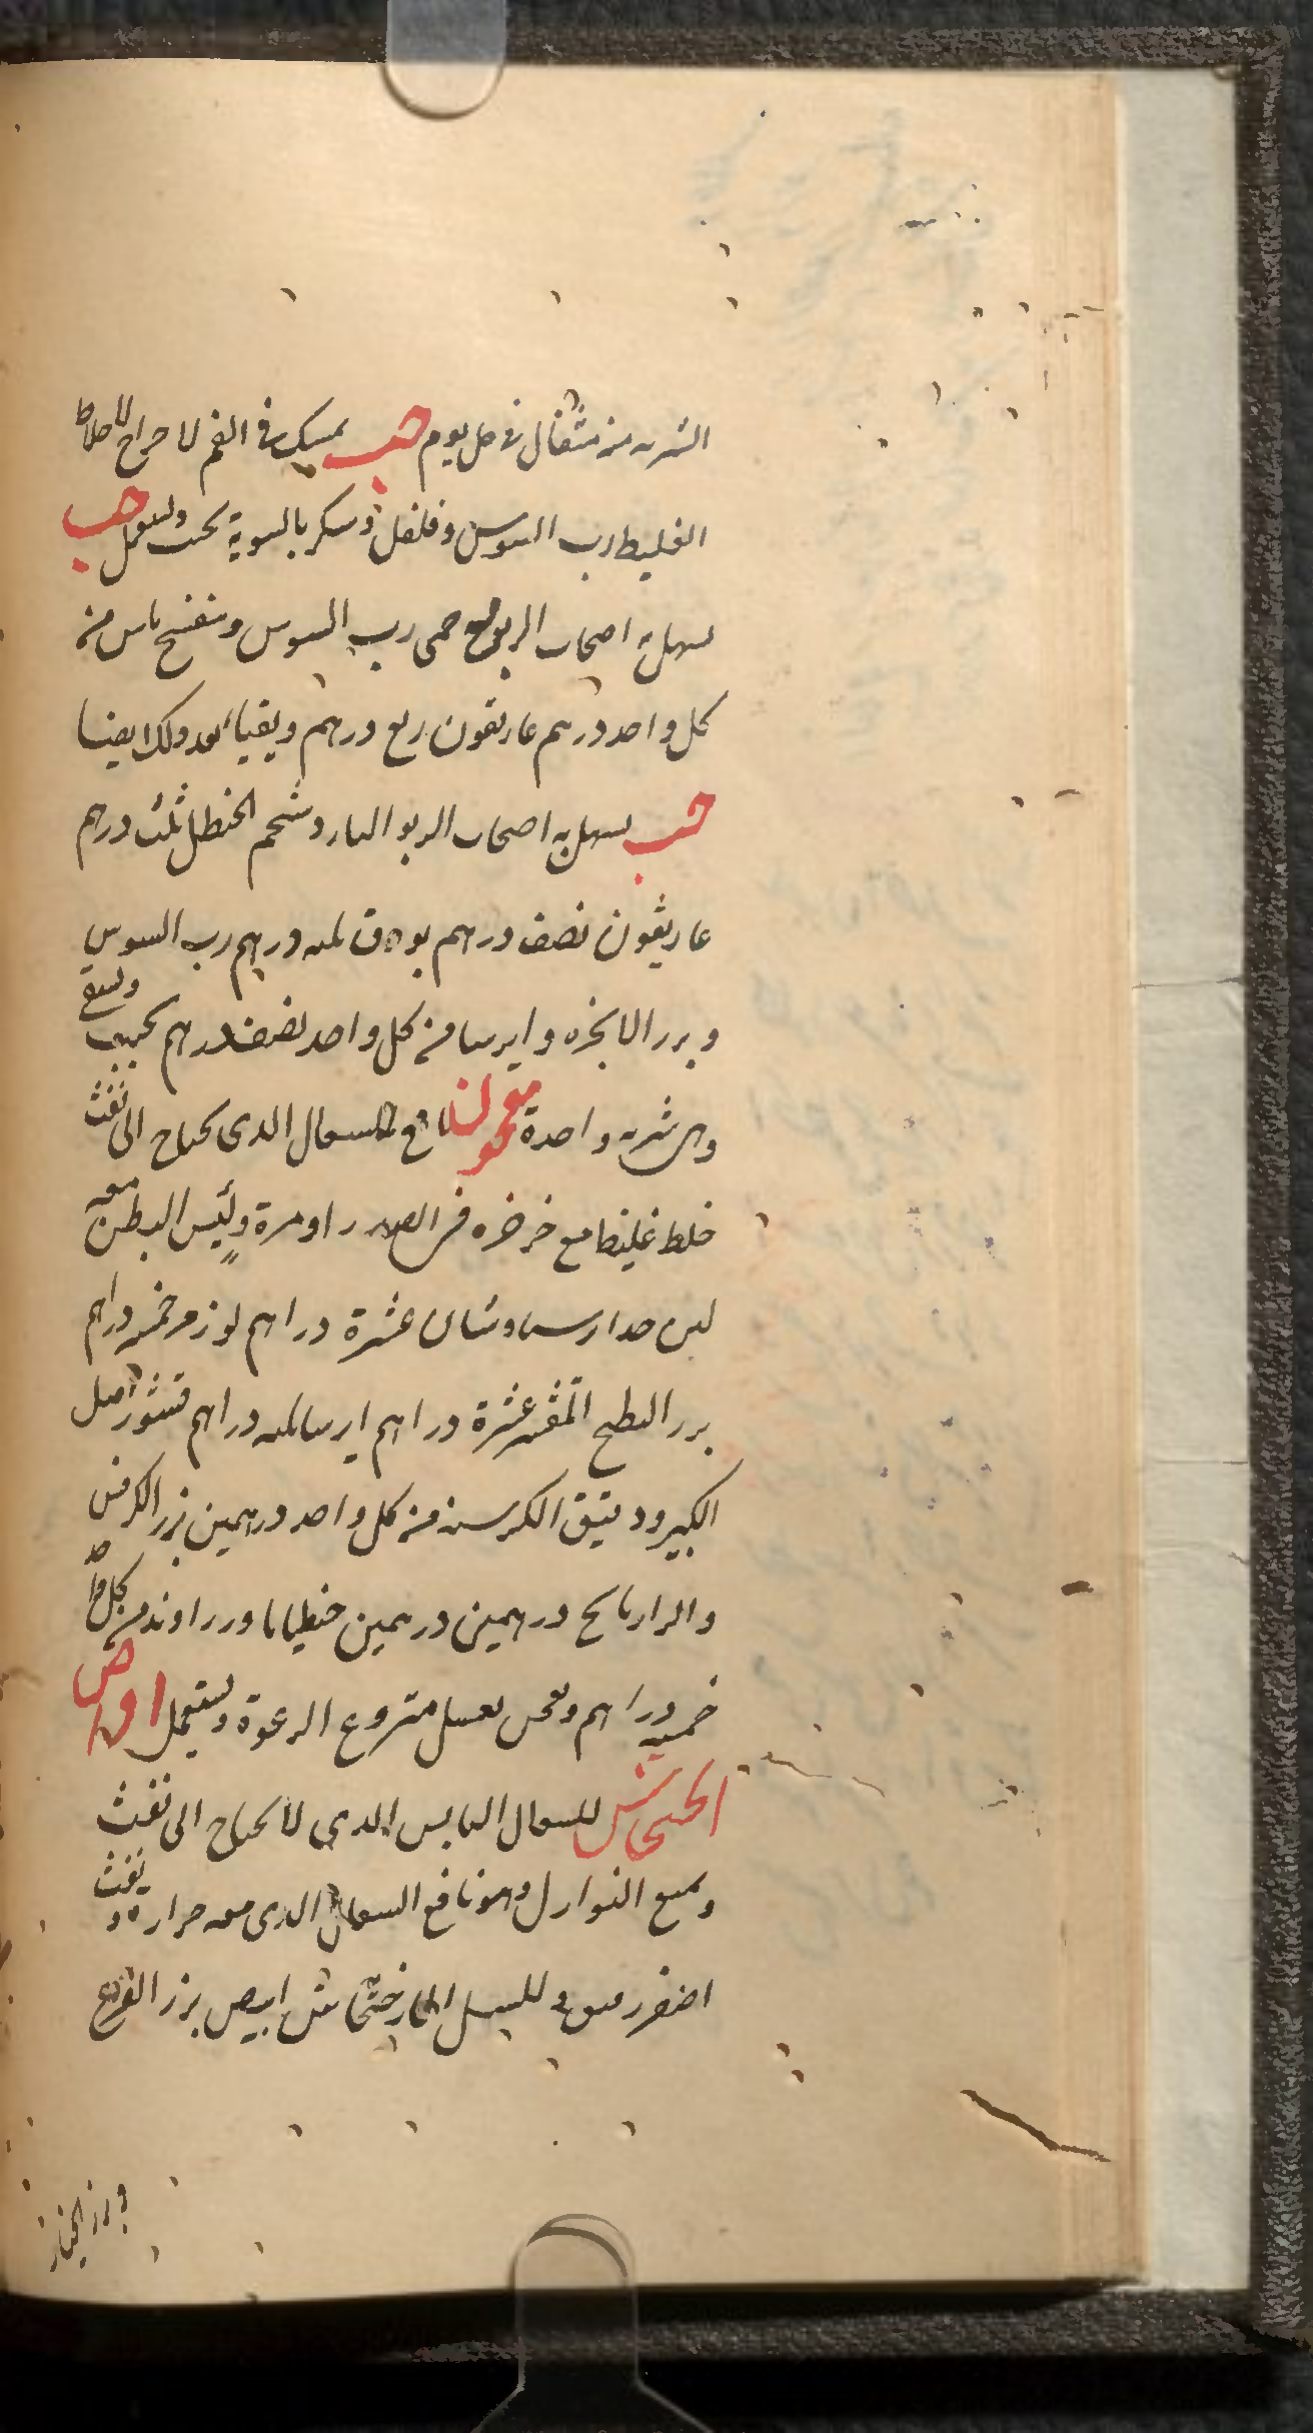 الشربه منه مثقال في كل يوم حب يمسك في الفم لاخراج الاخلاط
الغليظ رب السوس وفلفل وسكر بالسوية يحبب ويستعمل حب
يسهل به اصحاب الربو مع حمى رب السوس وبنفسج يابس منه
كل واحد درهم غاريقون ربع درهم ويقيا بعد ذلك ايضا
حب يسهل به اصحاب الربو البارد شحم الحنظل ثلث درهم
غاريقون نصف درهم بورق ثلث درهم رب السوس
وبزر الانجره وايرسا منه كل واحد نصف درهم يحبب ويسقى
وهي شربه واحدة معجون نافع للسعال الذي يحتاج الى نفث
خلط غليظ مع خرخره في الصدر او مرة وليس البطن معه
لين صدا برسياوشان عشرة دراهم لوز مر خمسه دراهم
بزر البطيخ المقشر عشرة دراهم ايرسا ثلثه دراهم قشور اصل
الكبر ودقيق الكرسنه منه كل واحد درهمين بزر الكرفس
والرازيانج درهمين درهمين جنطيانا وزراوند من كل واحد
خمسه دراهم ويعجن بعسل منزوع الرغوة ويستعمل اقراص
الخشخاش للسعال اليابس الذي لا يحتاج الى نفث
ويمنع النوازل وهو نافع السعال الذي معه حراره ونفث
اصفر رقيق وللسل الحار خشخاش ابيض بزر القرع
وبزر الخيار